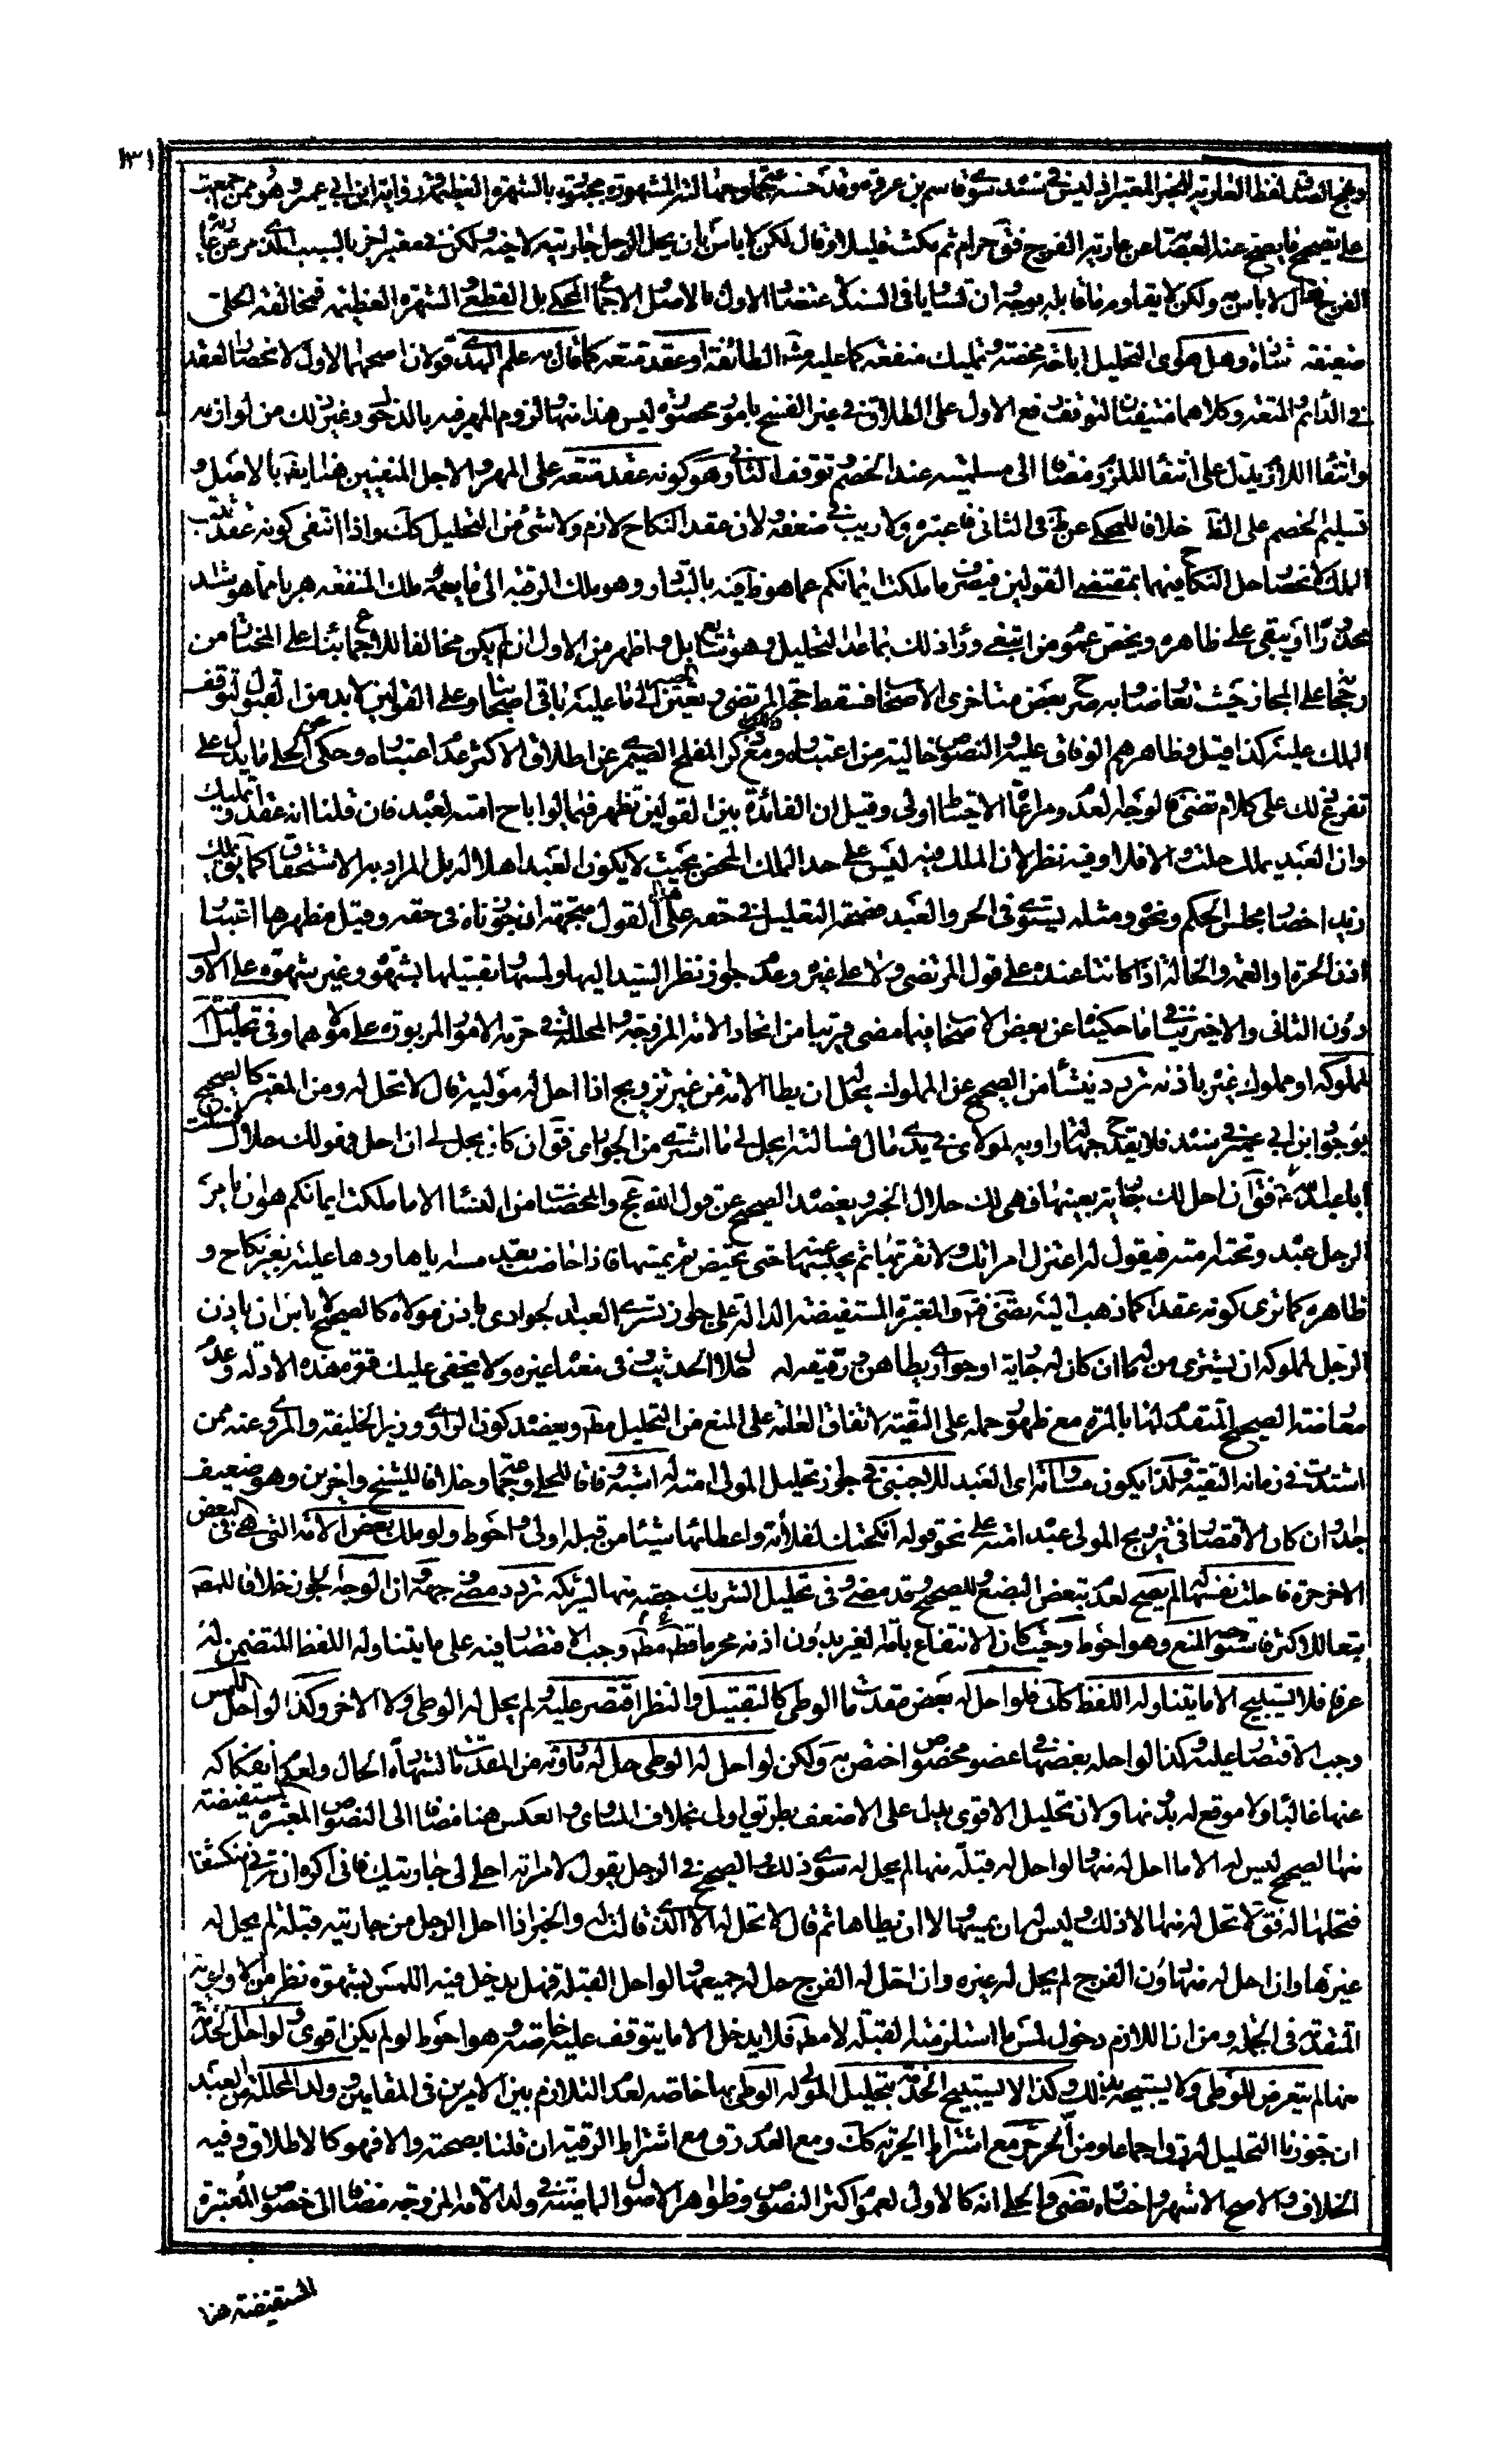 ١٣١
على تصحيح ما يصح عنه العصابة عن عارية الفرج فق حرام ثم مكث قليلا وقال لكن لا باس بان يحل الرجل جاريته لاخيه
الفرج قال لا باس به ولكن لا يقاوم ما قابله بوجه ان تساويا في السند لاعتضاد الاول بالاصل الاجماع المحكي بل القطعي والشهرة العظيمة فمخالفة الحلي
ضعيفة وهل هو اى التحليل اباحة محضة وتمليك منفعة كما عليه الطائفة او عقد متعة كما قال به علم الهدى قولان اصحهما الاول لانحصار العقد
في الدائم والمتعة وكلاهما منتفيان لتوقف الاول على الطلاق في غير الفسخ بامور محصورة ليس هذا منها ولزوم المهر فيه بالدخول وغير ذلك من لوازمه
وانتفاء اللازم يدل على انتفاء الملزوم مضافا الى مسلميته عند الخصم وتوقف الثاني وهو كونه عقد متعة على المهر والاجل المنفيين هنا بالاصل و
تسليم الخصم على الظ خلافا للمحكي عن ط في الثاني فاعتبره ولا ريب في ضعفه ولان عقد النكاح لازم ولا شئ من التحليل كك واذا انتفى كونه عقدا
الملك لانحصار حل النكاح فيهما بمقتضى القولين فيصرف ما ملكت ايمانكم عما هو ظ فيه بالتبادر وهو ملك الرقبة الى ما يعمه وملك المنفعة هربا مما هو اشد
محذورا او يبقى على ظاهره ويخص عموم من ابتغى وراء ذلك بما عدا التحليل وهو شايع بل اظهر من الاول ان لم يكن مخالفا للاجماع بناء على المختار من
الملك عليه كذا قيل وظاهرهم الوفاق عليه والنصوص خالية من اعتباره
تفريع ذلك على كلام المرتضى فالوجه العدم ومراعاة الاحتياط اولى وقيل ان الفائدة بين القولين تظهر فيما لو اباح امته لعبده فان قلنا انه عقد او تمليك
وان العبد يملك حلت والا فلا وفيه نظر لان الملك فيه ليس على حد الملك المحض بحيث لا يكون العبد اهلا له بل المراد به الاستحقاق كما يق يملك
زيد احضار مجلس الحكم ونحوه ومثله يستوى في الحر والعبد فصحة التحليل في حقه على القول متجهة ان جوزناه في حقه وقيل مظهرها اعتبار
اذن الحرة او العمة والخالة اذا كانتا عنده على قول المرتضى ولا على غيره وعدم جواز نظر السيد اليها ولمسها وتقبيلها بشهوة وغير شهوة على الاول
دون الثاني والاخير ينافي ما حكيناه عن بعض الاصحاب فيما مضى قريبا من اتحاد الامة المزوجة والمحللة في حرمة الامور المزبورة على مولاهما وفي تحليل امته
لمملوكه او مملوك غيره باذنه تردد ينشأ من الصحيح عن المملوك يحل له ان يطأ الامة من غير تزويج اذا احل له مولاه قال لا تحل له ومن المعتبر كالصحيح
بوجود ابن ابي عمير في سنده فلا يقدح جهالة راويه لمولاي في يدي مال فسالته ان يحل لي ما اشترى من الجواري فق ان كان يحل لي ان احل لك فهو لك حلال فسئلت
ابا عبد الله ع فق ان احل لك جارية بعينها فهى لك حلال الخبر ويعضده الصحيح عن قول الله عج والمحصنات من النساء الا ما ملكت ايمانكم هو ان يامر
الرجل عبده وتحته امته فيقول له اعتزل امراتك ولا تقربها ثم يحبسها عنه حتى تحيض ثم يمسها فاذا حاضت بعد مسه اياها ردها عليه بغير نكاح و
ظاهره كما ترى كونه عقدا كما ذهب اليه المرتضى والمعتبرة المستفيضة الدالة على جواز تسرى العبد الجواري باذن مولاه كالصحيح لا باس ان ياذن
الرجل لمملوكه ان يشترى من ماله ان كان له جارية او جواري يطأهن ورقيقه له حلال الحديث وفي معناه غيره ولا يخفى عليك قوة هذه الادلة وعدم
معارضة الصحيح المتقدم لها بالمرة مع ظهور حمله على التقية لاتفاق العامة على المنع من التحليل مط ويعضده كون الراوي وزير الخليفة والمروى عنه ممن
اشتدت في زمانه التقية وكذا يكون مساواته اى العبد للاجنبي في جواز تحليل المولى امته له اشبه وفاقا للحلي وجماعة وخلافا للشيخ واخرين وهو ضعيف
جدا وان كان الاقتصار في تزويج المولى عبده امته على نحو قوله انكحتك لفلانة واعطائها شيئا من قبله اولى واحوط ولو ملك بعض الامة التي هي في البعض
الاخر حرة فاحلت نفسها له لم يصح لعدم تبعض البضع وللصحيح وقد مضى وفي تحليل الشريك حصته منها لشريكه تردد مضى جهته وان الوجه الجواز خلافا للمص
تبعا للاكثر فاستوجه المنع وهو احوط وحيث كان الانتفاع بامة الغير بدون اذنه محرما قطعا وجب الاقتصار فيه على ما يتناوله اللفظ المتضمن له
عرفا فلا يستبيح الا ما يتناوله اللفظ كك فلو احل له بعض مقدمات الوطى كالتقبيل والنظر اقتصر عليه ولم يحل له الوطى ولا الاخر وكذا لو احل اللمس
وجب الاقتصار عليه وكذا لو احل له بعضها في عضو مخصوص اختص به ولكن لو احل له الوطى حل له ما دونه من المقدمات لشهادة الحال ولعدم انفكاكه
عنها غالبا ولا موقع له بدونها ولان تحليل الاقوى يدل على الاضعف بطريق اولى بخلاف المساوي والعكس هنا مضافا الى النصوص المعتبرة المستفيضة
منها الصحيح ليس له الا ما احل له منها ولو احل له قبلة منها لم يحل له سوى ذلك والصحيح في الرجل يقول لامراته احلي لي جاريتك فاني اكره ان تراني منكشفا
فتحلها له فق لا تحل له منها الا ذلك وليس له ان يمسها ولا ان يطأها ثم قال لا تحل له الا الذي قالت له والخبر اذا احل الرجل من جاريته قبلة لم يحل له
غيرها وان احل له منها دون الفرج لم يحل له غيره وان احل له الفرج حل له جميعها ولو احل القبلة فهل يدخل فيه اللمس بشهوة نظر من الاولوية
المتقدمة في الجملة ومن ان اللازم دخول لمس ما استلزمته القبلة لا مط فلا يدخل الا ما يتوقف عليه خاصة وهو احوط لو لم يكن اقوى ولو احل الخدمة
منها لم يتعرض للوطى ولا يستبيحه بذلك وكذا لا يستبيح الخدمة بتحليل المولى له الوطى بها خاصة لعدم التلازم بين الامرين في المقامين وولد المحللة من العبد
ان جوزنا التحليل له رق اجماعا ومن الحر حر مع اشتراط الحرية كك ومع العدم رق مع اشتراط الرقية ان قلنا بصحته والا فهو كالاطلاق وفيه
الخلاف والاصح الاشهر واختاره المرتضى والحلي انه كالاولى لعموم اكثر النصوص وظواهر الاصول الماضية في ولد الامة المزوجة مضافا الى خصوص المعتبرة
المستفيضة هنا